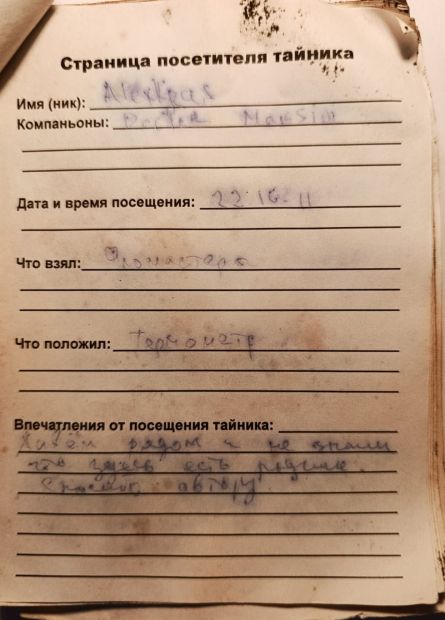 Страница посетителя тайника
Имя (ник): Alexkpas
Компаньоны: Maksim
Дата и время посещения: 22 10 11
Что взял:
Что положил: Термометр
Впечатления от посещения тайника:
Живём рядом и не знали
что здесь есть родник.
Спасибо автору